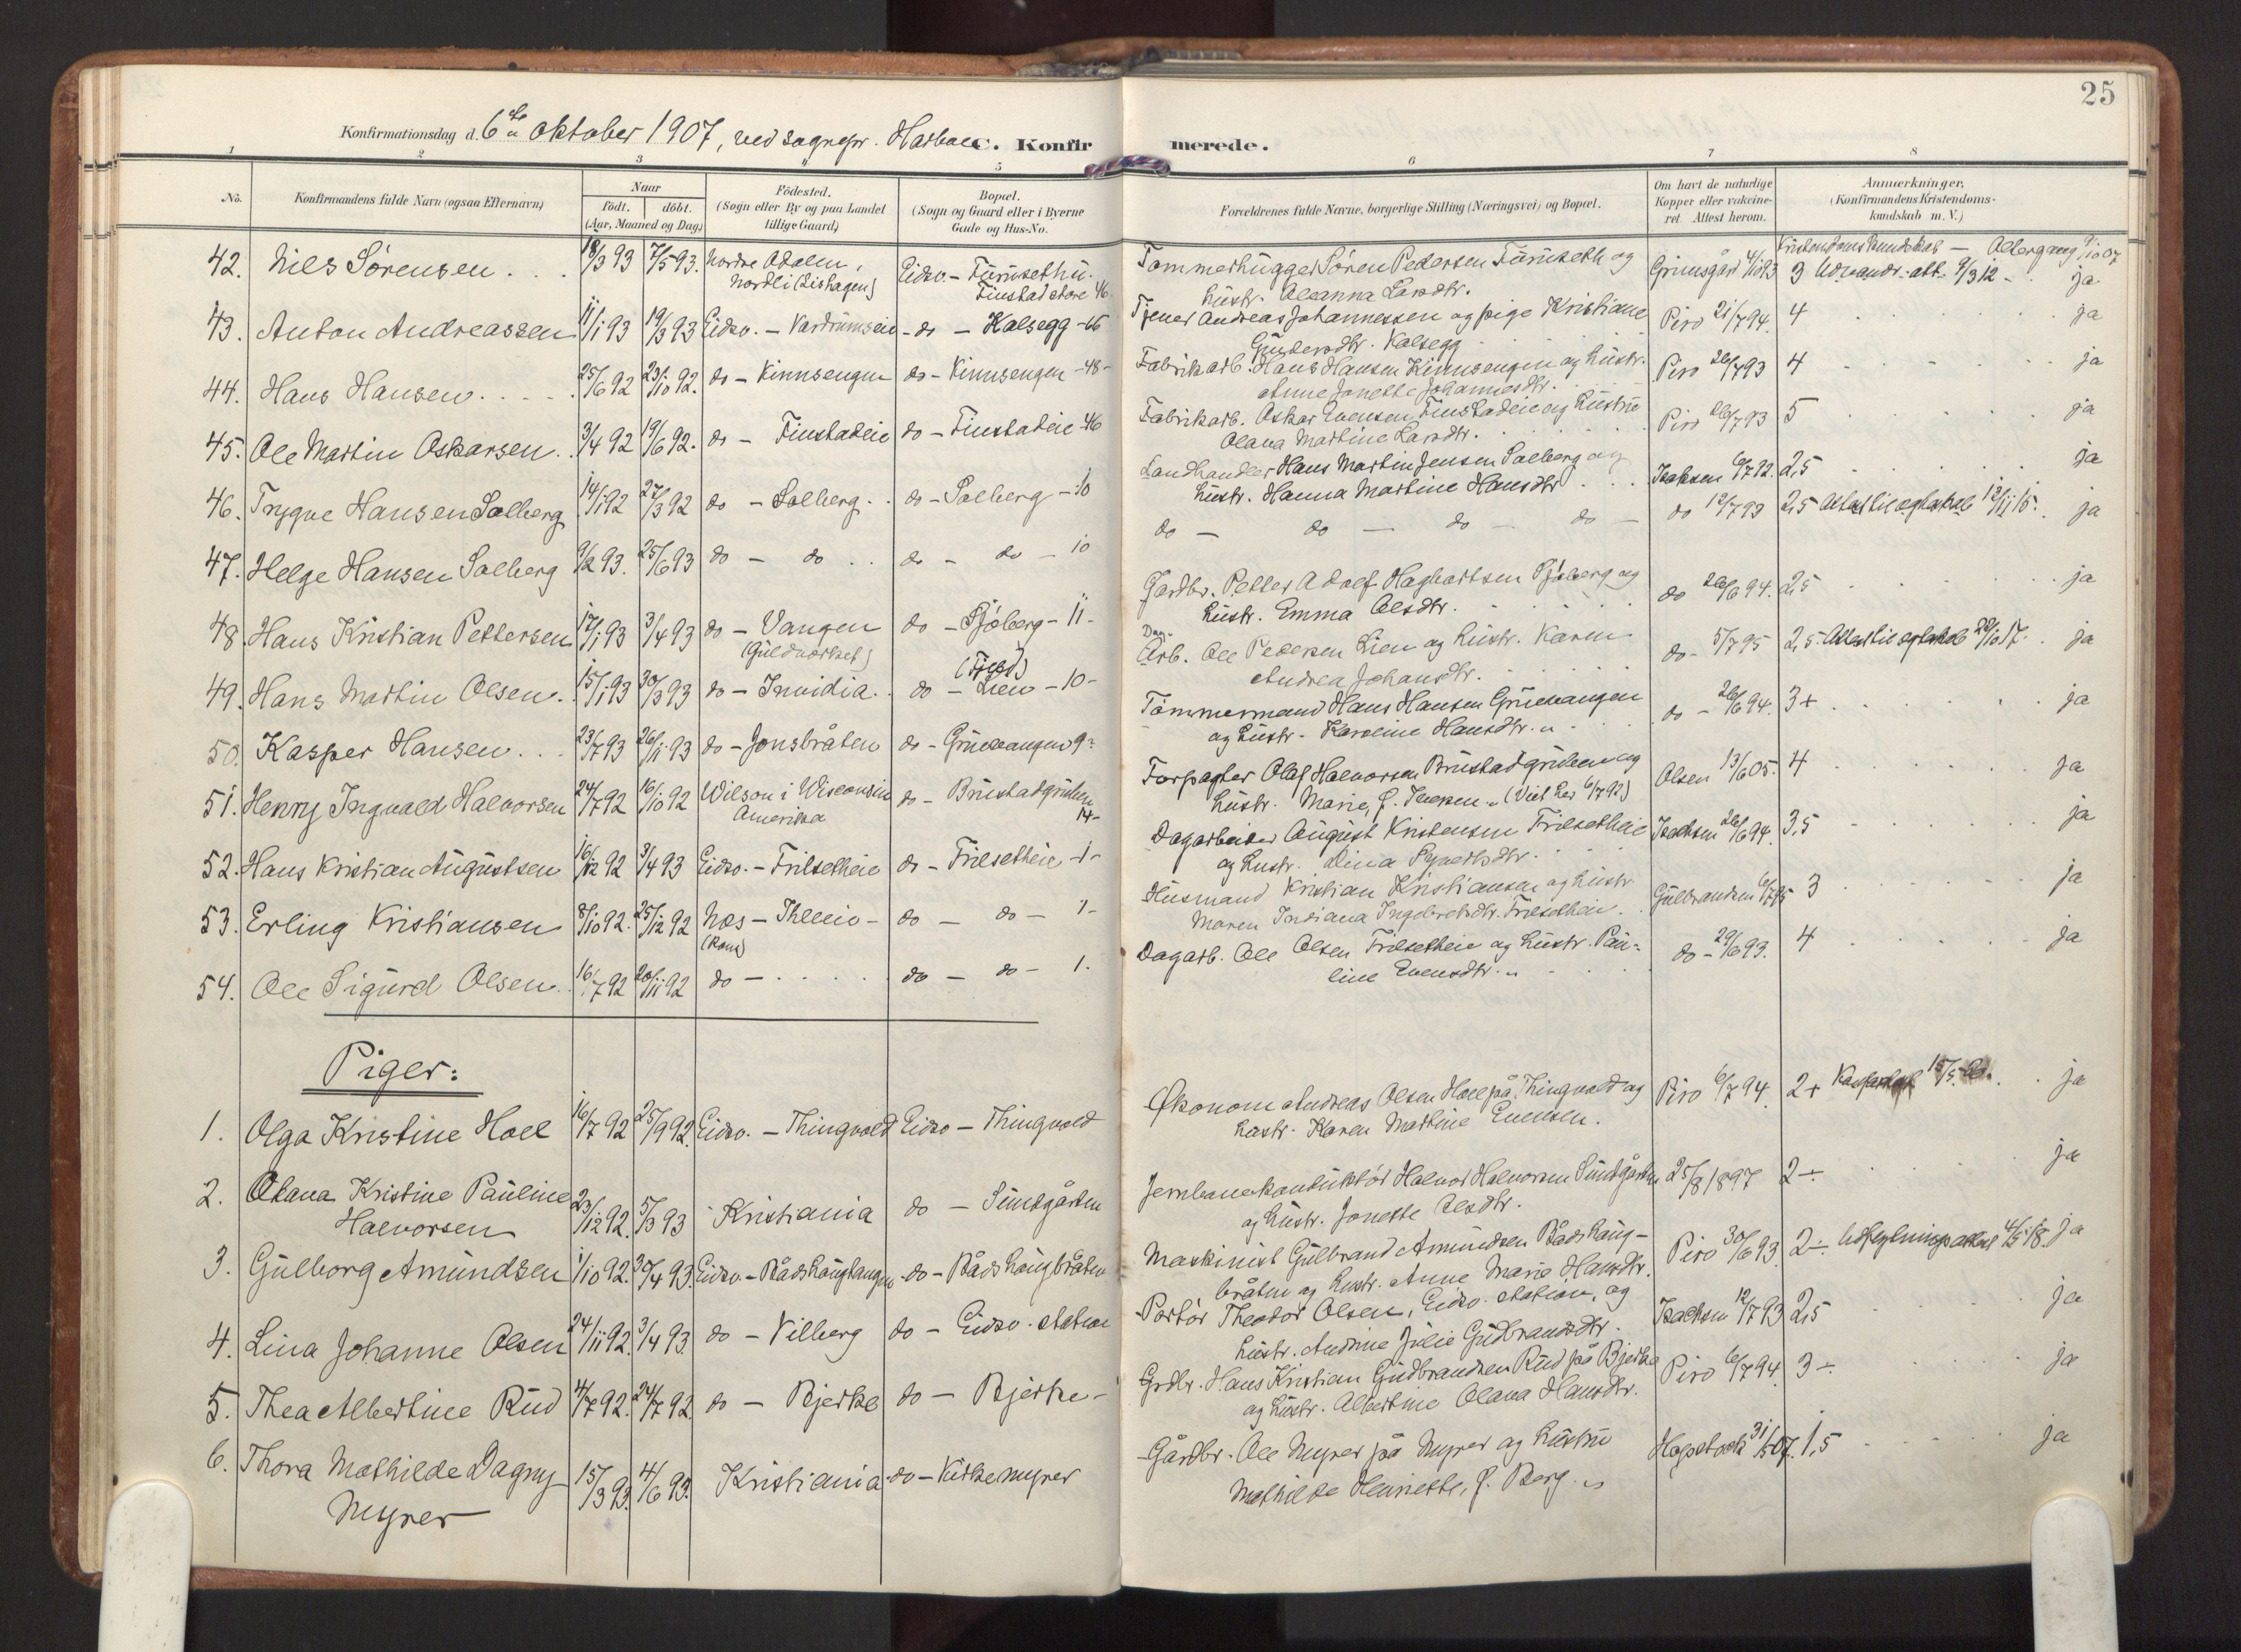 25
Konfirmationsdag d. 6te oktober 1907, ved sognepr.
C. Konfirmerede.
1 2 3 5 6 7 8
No.
Konfirmandens fulde Navn (ogsaa Efternavn)
Naar
födt. döbt.
(Aar, Maaned og Dag)
Födested.
(Sogn eller By og paa Landet
tillige Gaard)
Bopæl.
(Sogn og Gaard eller i Byerne
Gade og Hus-No.
Forældrenes fulde Navne, borgerlige Stilling (Næringsvei) og Bopæl.
Om havt de naturlige
Kopper eller vaccine-
ret. Attest herom.
Anmærkninger,
(Konfirmandens Kristendoms-
kundskab m. V.)
42. Nils Sörensen 18/3 93 7/5 93. Nordre Odalen, Eidsv. - Furuseth u. Tømmerhugger Sören Pedersen Furuseth og Grinsgård 4/10 93 Kristendomskundskab
Nordli (Lishagen) Finstad store 46. hustr. Oleanna Larsdtr. 3 Udvandr. att. 9/3 12 ja
43. Anton Andreassen 11/1 93 19/3 93 Eidsv. - do - Kalsegg - 66 Tjener Andreas Johannessen og pige Kristiane Piro 21/7 94. 4 ja
Gundersdtr. Kalsegg
44. Hans Hansen 25/6 92 23/10 92. do - Kinnsengen do - Kinnsengen - 48 - Fabrikarb. Hans Hansen Kinnsengen og hustr. Piro 26/7 93 4 ja
Anne Jonette Johannesdtr.
45. Ole Martin Oskarsen 3/4 92 19/6 92. do - Finstadeie do - Finstadeie 46 Fabrikarb. Oskar Evensen Finstadeie og hustru Piro 26/7 93 5 ja
Olava Martine Larsdtr.
46. Trygve Hansen Solberg 14/1 92 27/3 92 do - Solberg do - Solberg - 10 Landhandler Hans Martin Jensen Solberg og Isachsen 6/7 92. 2,5 ja
hustr. Hanna Martine Hansdtr.
47. Helge Hansen Solberg 9/2 93. 25/6 93 do - do do - do - 10 do - do - do - do - do 12/7 93 2,5 Attest lie og 12/11 15. ja
48. Hans Kristian Pettersen 17/1 93 3/4 93 do - Vangen do - Sjöberg - 11 - Gardbr. Petter Adolf Hagbartsen Sjöberg og do 26/6 94. 2,5 ja
(Guldværket) hustr. Emma Olsdtr.
49. Hans Martin Olsen. 15/1 93 30/3 93 do - Invidia. do - Lien - 10 - Dag-
Arb. Ole Pedersen Lien og hustr. Karen do - 5/7 95 2,5 17. ja
Andrea Johansdtr.
50. Kasper Hansen 23/7 93 26/11 93 do - Jonsbråten do - Gruevangen 9 Tömmermand Hans Hansen Gruevangen do - 26/6 94. 3+ ja
og hustr. Karoline Hansdtr.
51. Henry Ingvald Halvorsen 24/7 92 16/10 92 Wilson i Wisconsin do - Brustadgruben Forpagter Olaf Halvorsen Brustadgruben og Olsen 13/6 05. 4 ja
Amerika 14 - hustr. Marie, f. Iversen. (Viet her 6/7 92)
52. Hans Kristian Augustsen 16/12 92 3/4 93 Eidsv. - Frilsetheie do - Frilsetheie - 1 - Dagarbeider August Kristensen Frilsetheie Isachsen 26/6 94. 3,5 ja
og hustr. Lina Syvertsdtr.
53. Erling Kristiansen 8/10 92. 25/12 92 Næs - do - do - 1 - Husmand Kristian Kristiansen og hustr. Gulbrandsen 6/7 95 3 ja
(Rom) Maren Indiana Ingebretsdtr. Frilsetheie.
54. Ole Sigurd Olsen 16/7 92 20/11 92 do - do - do - 1. Dagarb. Ole Olsen Frilsetheie og hustr. Pau- do - 29/6 93. 4 ja
line Evensdtr.
Piger:
1. Olga Kristine Hoel 16/7 92 25/9 92. Eidsv. - Thingvold Eidsv - Thingvold Økonom Andreas Olsen Hoel på Thingvold og Piro 6/7 94. 2+ ja
hustr. Karen Martine Evensen.
2. Olava Kristine Pauline 23/12 92. 5/3 93 Kristiania do - Sundgården Jernbanekonduktör Halvor Halvorsen Sundgården 25/8 1897 2÷ ja
Halvorsen og hustr. Jonette Olsdtr.
3. Gulborg Amundsen 1/10 92. 30/4 93. Eidsv - Rådshaugbangen do - Rådshaugbråten Maskinist Gulbrand Amundsen Rådshaug- Piro 30/6 93. 2÷ ja
bråten og hustr. Anne Marie Hansdtr.
4. Lina Johanne Olsen 24/11 92. 3/4 93. do - Vilberg do - Eidsv. station Portör Theodor Olsen, Eidsv. station, og Isachsen 12/7 93 2,5 ja
hustr. Andrine Julie Gudbrandsdtr.
5. Thea Albertine Rud 4/7 92. 24/7 92. do - Bjerke do - Bjerke - Grdbr. Hans Kristian Gudbrandsen Rud på Bjerke Piro 6/7 94. 3÷ ja
og hustr. Albertine Olava Hansdtr.
6. Thora Mathilde Dagny 15/3 93. 4/6 93. Kristiania do - Kirkemyrer Gårdbr. Ole Myrer på Myrer og hustru Hopstock 31/5 07. 1,5 ja
Myrer Mathilde Henriette, f. Berg.